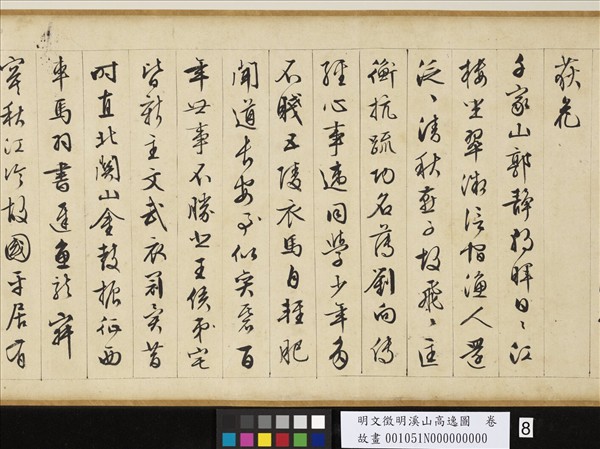 荻花
千家山郭靜朝暉日〻江
樓坐翠微信宿漁人還
泛〻清秋燕子故飛〻匡
衡抗疏功名薄劉向傳
經心事違同學少年多
不賤五陵衣馬自輕肥
聞道長安似奕棊百
年世事不勝悲王侯第宅
皆新主文武衣冠異昔
時直北關山金鼓振征西
車馬羽書遲魚龍寂
寞秋江冷故國平居有
明文徵明溪山高逸圖　卷
故畫 001051N000000000
8